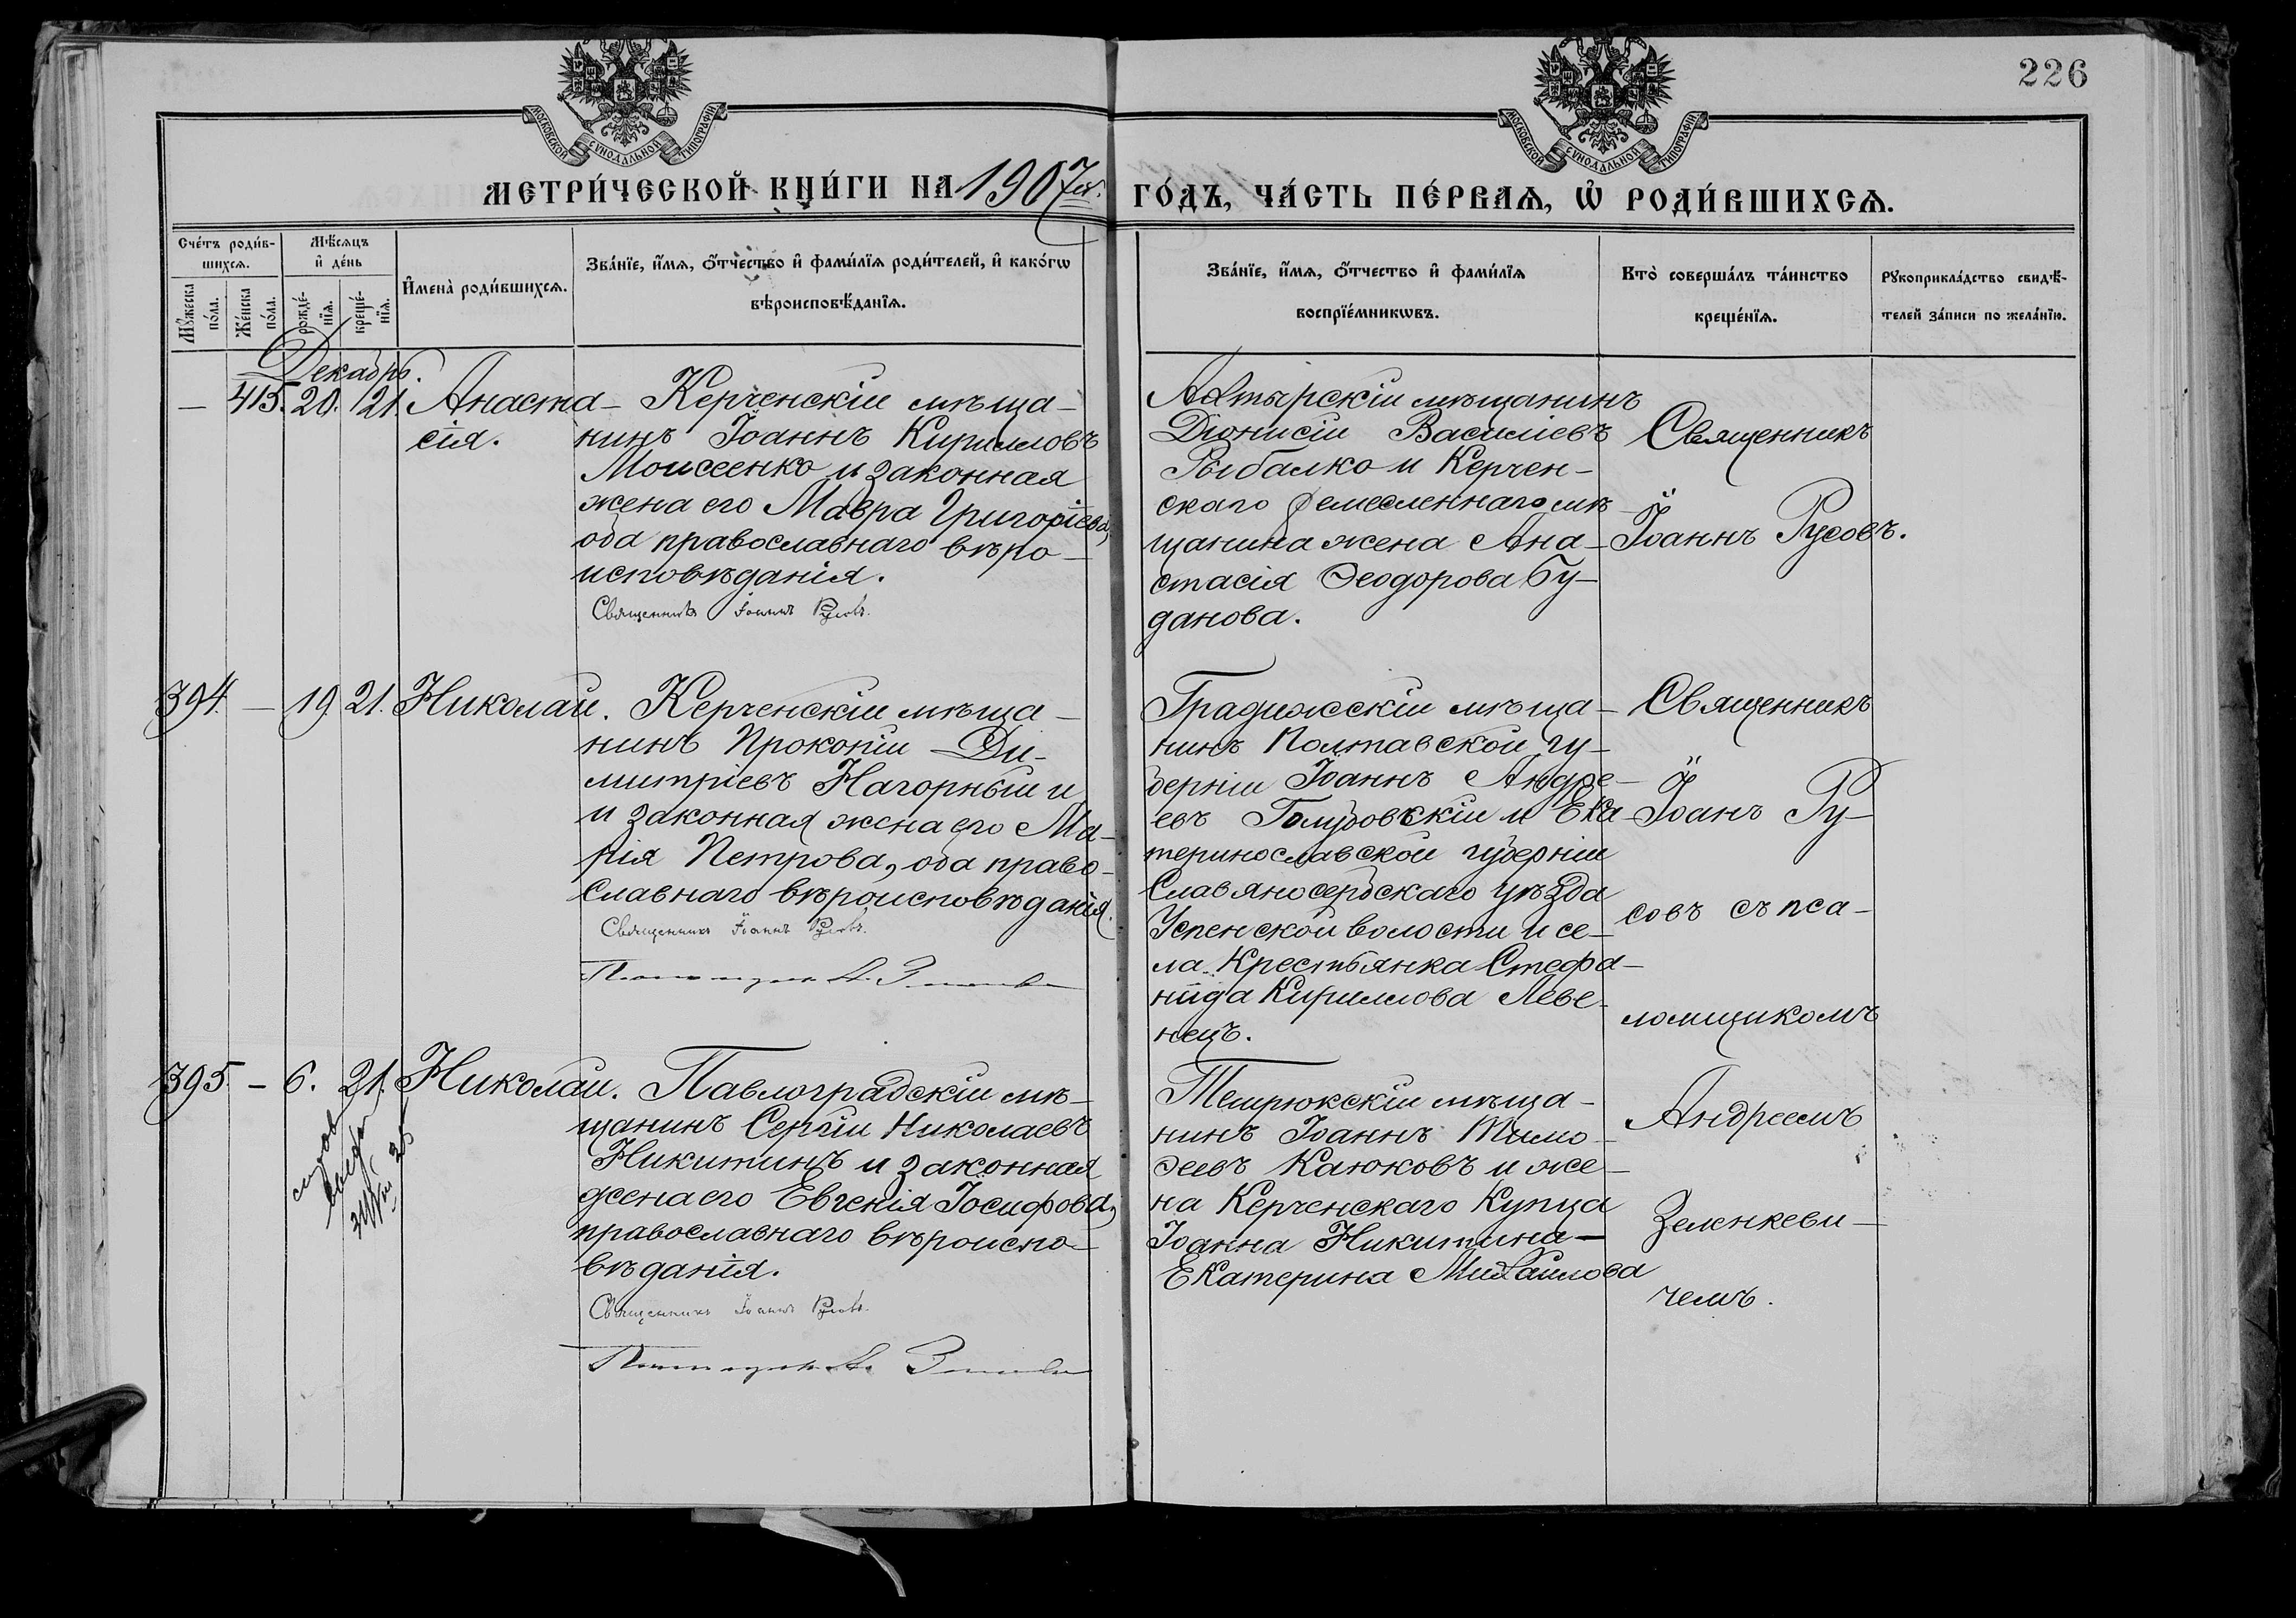 226
МОСКОВСКОЙ СѴНОДАЛЬНОЙ ТИПОГРАФІИ
МОСКОВСКОЙ СѴНОДАЛЬНОЙ ТИПОГРАФІИ
МЕТРИ́ЧЕСКОЙ КНИ́ГИ НА 1907 ГО́ДЪ, ЧА́СТЬ ПЕ́РВАѦ, Ѡ РОДИ́ВШИХСѦ.
Сче́тъ роди́в-
шихсѧ.
Мꙋ́жеска по́ла.
Же́нска по́ла.
Мѣ́сѧцъ
и҆ де́нь
рожде́-
нїѧ.
креще́-
нїѧ.
И҆мена̀ роди́вшихсѧ.
Зва́нїе, и҆́мѧ, ѻ҆́тчество и҆ фами́лїѧ роди́телей, и҆ како́гѡ
вѣроисповѣ́данїѧ.
Зва́нїе, и҆́мѧ, ѻ҆́тчество и҆ фами́лїѧ
воспрїе́мникѡвъ.
Кто̀ соверша́лъ та́инство
креще́нїѧ.
Рꙋкоприкла́дство свидѣ́-
телей за́писи по жела́нїю.
Декабрь.
— 415. 20. 21. Анаста-
сія.
Керченскій мѣща-
нинъ Іоаннъ Кирилловъ
Моисеенко и законная
жена его Мавра Григоріева,
оба православнаго вѣро-
исповѣданія.
Священникъ Іоаннъ Русовъ.
Ахтырскій мѣщанинъ
Діонисій Василіевъ
Рыбалко и Керчен-
скаго ремесленнаго мѣ-
щанина жена Ана-
стасія Ѳеодорова Бу-
данова.
Священникъ
Іоаннъ Русовъ.
394. — 19. 21. Николай.
Керченскій мѣща-
нинъ Прокопій Ди-
митріевъ Нагорный и
и законная жена его Ма-
рія Петрова, оба право-
славнаго вѣроисповѣданія.
Священникъ Іоаннъ Русовъ.
Градижскій мѣща-
нинъ Полтавской гу-
берніи Іоаннъ Андре-
евъ Голубовскій и Ека-
теринославской губерніи
Славяносербскаго уѣзда
Успенской волости и се-
ла Крестьянка Стефа-
нида Кириллова Леве-
нецъ.
Священникъ
Іоанъ Ру-
совъ съ пса-
ломщикомъ
Андреемъ
Зеленкеви-
чемъ.
395. — 6. 21. Николай.
Павлоградскій мѣ-
щанинъ Сергій Николаевъ
Никитинъ и законная
жена его Евгенія Іосифова,
православнаго вѣроиспо-
вѣданія.
Священникъ Іоаннъ Русовъ.
Темрюкскій мѣща-
нинъ Іоаннъ Тимо-
ѳеевъ Каюковъ и же-
на Керченскаго Купца
Іоанна Никитина—
Екатерина Михайлова